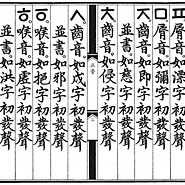 ㅍ脣音如漂字初發聲
ㅁ脣音如彌字初發聲
ㅈ齒音如即字初發聲
並書如慈字初發聲
ㅊ齒音如侵字初發聲
ㅅ齒音如戌字初發聲
並書如邪字初發聲
ㆆ喉音如挹字初發聲
ㅎ喉音如虛字初發聲
並書如洪字初發聲